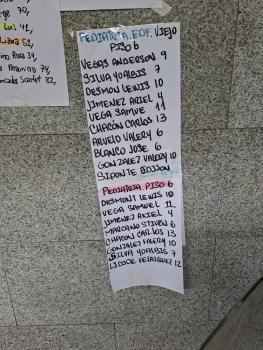 70,
Luis 41,
Liana 61,
Rosa 39,
Mauricio 74,
Scarlet 82,
PEDIATRIA. EDF. VIEJO
PISO 6
VEGAS ANDERSON 9
SILVA YOALBIS 7
DESMON LEWIS 10
JIMENEZ ARIEL 4
VEGA SAMUEL 11
CHACÓN CARLOS 13
ARVELO VALERY 6
BLANCO JOSE 6
GONZALEZ VALERY 10
BIPONTE EDISON
PEDIATRIA PISO 6
DESMONT LEWIS 10
VEGA SAMUEL 11
JIMENEZ ARIEL 4
MARCANO STIVEN 6
CHACON CARLOS 13
GONZALEZ VALERY 10
SILVA YOALBIS 7
VELAZQUEZ 12